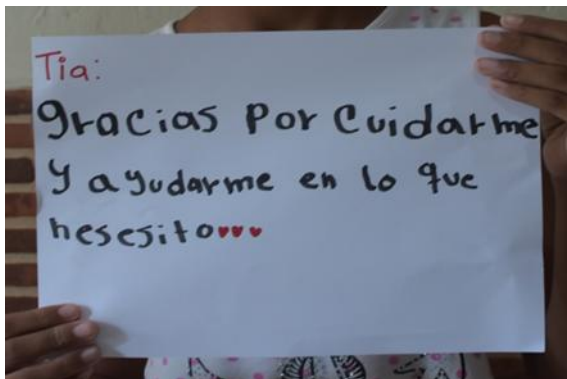 Tia:
gracias por cuidarme
y ayudarme en lo que
nesesito♥♥♥